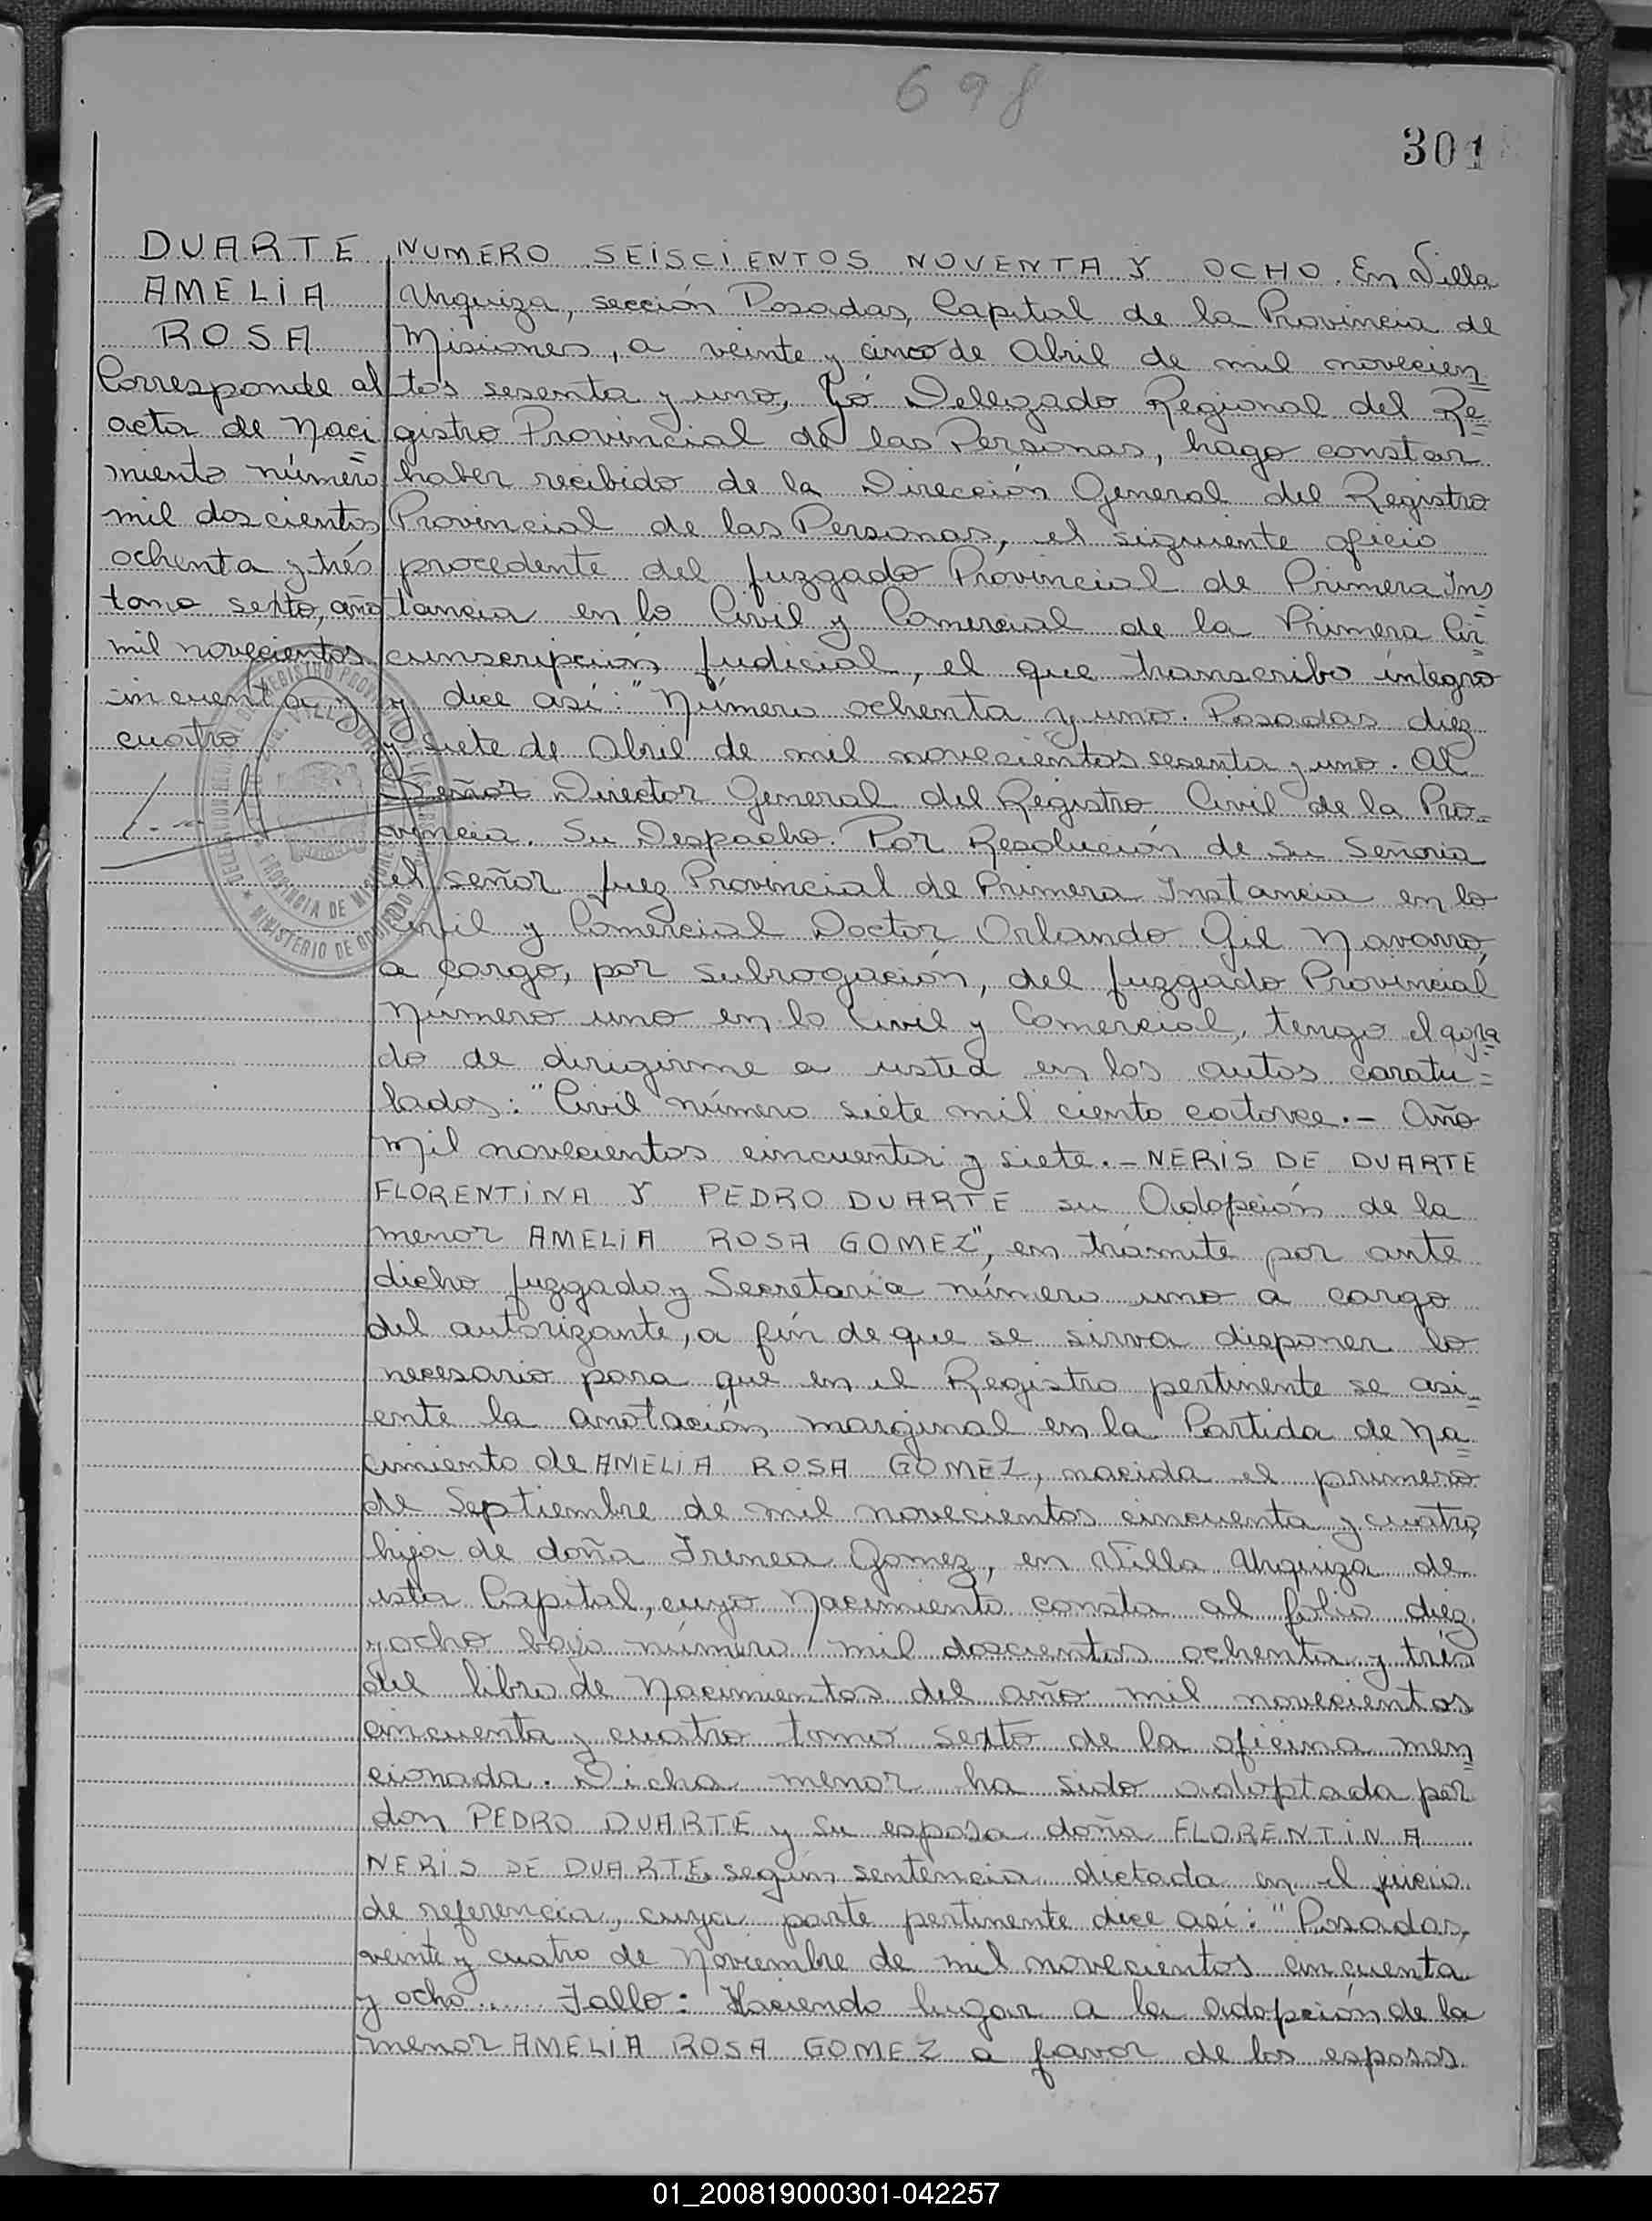 698
301
DUARTE
AMELIA
ROSA
Corresponde al
acta de Naci
miento número
mil doscientos
ochenta y trés
tomo sexto, año
mil novecientos
cincuenta y
cuatro
NUMERO SEISCIENTOS NOVENTA Y OCHO. En Villa
Urquiza, sección Posadas, Capital de la Provincia de
Misiones, a veinte y cinco de Abril de mil novecien
tos sesenta y uno, Yó Delegado Regional del Re
gistro Provincial de las Personas, hago constar
haber recibido de la Dirección General del Registro
Provincial de las Personas, el siguiente oficio
procedente del Juzgado Provincial de Primera Ins
tancia en lo Civil y Comercial de la Primera Cir
cunscripción Judicial, el que transcribo íntegro
y dice así: "Número ochenta y uno. Posadas diez
y siete de Abril de mil novecientos sesenta y uno. Al
Señor Director General del Registro Civil de la Pro-
vincia. Su Despacho. Por Resolución de Su Señoria
el señor Juez Provincial de Primera Instancia en lo
Civil y Comercial Doctor Orlando Gil Navarro,
a cargo, por subrogación, del Juzgado Provincial
Número uno en lo Civil y Comercial, tengo el agra
do de dirigirme a usted en los autos caratu=
lados: "Civil número siete mil ciento catorce.- Año
mil novecientos cincuenta y siete.- NERIS DE DUARTE
FLORENTINA Y PEDRO DUARTE su Adopción de la
menor AMELIA ROSA GOMEZ", en trámite por ante
dicho Juzgado y Secretaría número uno a cargo
del autorizante, a fín de que se sirva disponer lo
necesario para que en el Registro pertinente se asi-
ente la anotación marginal en la Partida de Na
cimiento de AMELIA ROSA GOMEZ, nacida el primero
de Septiembre de mil novecientos cincuenta y cuatro,
hija de doña Irenea Gomez, en Villa Urquiza de
esta Capital, cuyo Nacimiento consta al folio diez
y ocho bajo número mil doscientos ochenta y trés
del libro de Nacimientos del año mil novecientos
cincuenta y cuatro tomo sexto de la oficina men
cionada. Dicha menor ha sido adoptada por
don PEDRO DUARTE y su esposa doña FLORENTINA
NERIS DE DUARTE, según sentencia dictada en el juicio
de referencia, cuya parte pertinente dice así: "Posadas,
veinte y cuatro de Noviembre de mil novecientos cincuenta
y ocho..... Fallo: Haciendo lugar a la Adopción de la
menor AMELIA ROSA GOMEZ a favor de los esposos
REGISTRO PROVINCIAL DE LAS PERSONAS
PROVINCIA DE MISIONES
MINISTERIO DE GOBIERNO
01_200819000301-042257